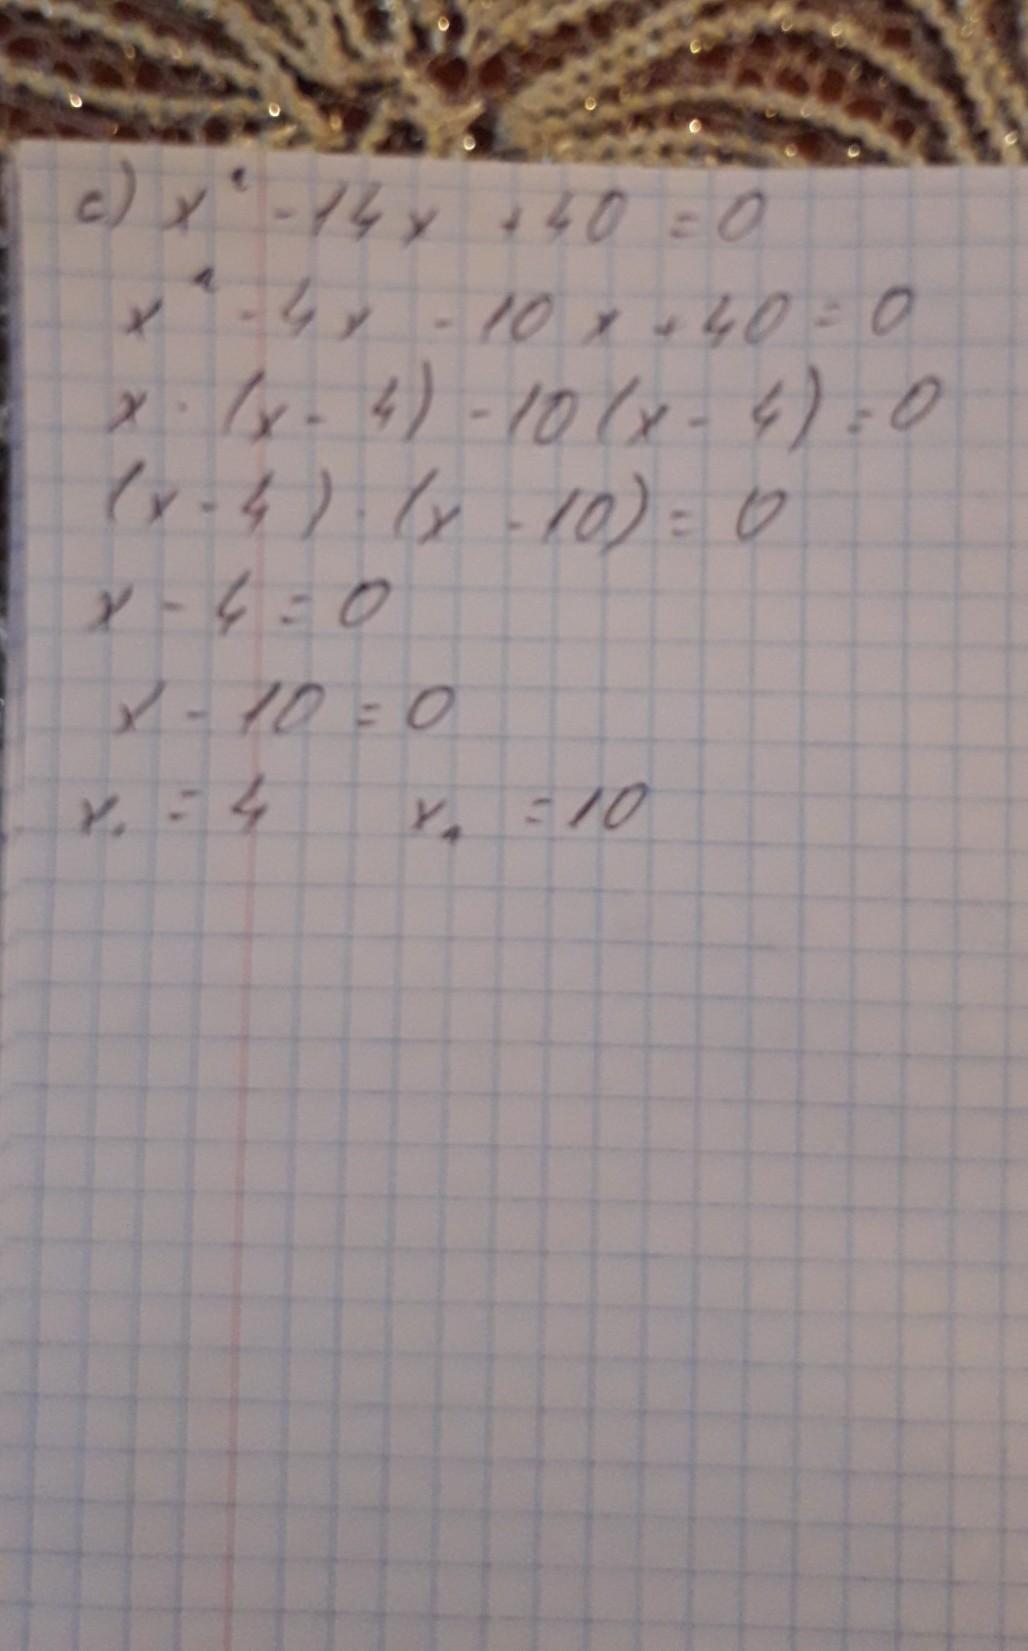 c) x² - 14x + 40 = 0
x² - 4x - 10x + 40 = 0
x · (x - 4) - 10(x - 4) = 0
(x - 4) · (x - 10) = 0
x - 4 = 0
x - 10 = 0
x₁ = 4 x₂ = 10